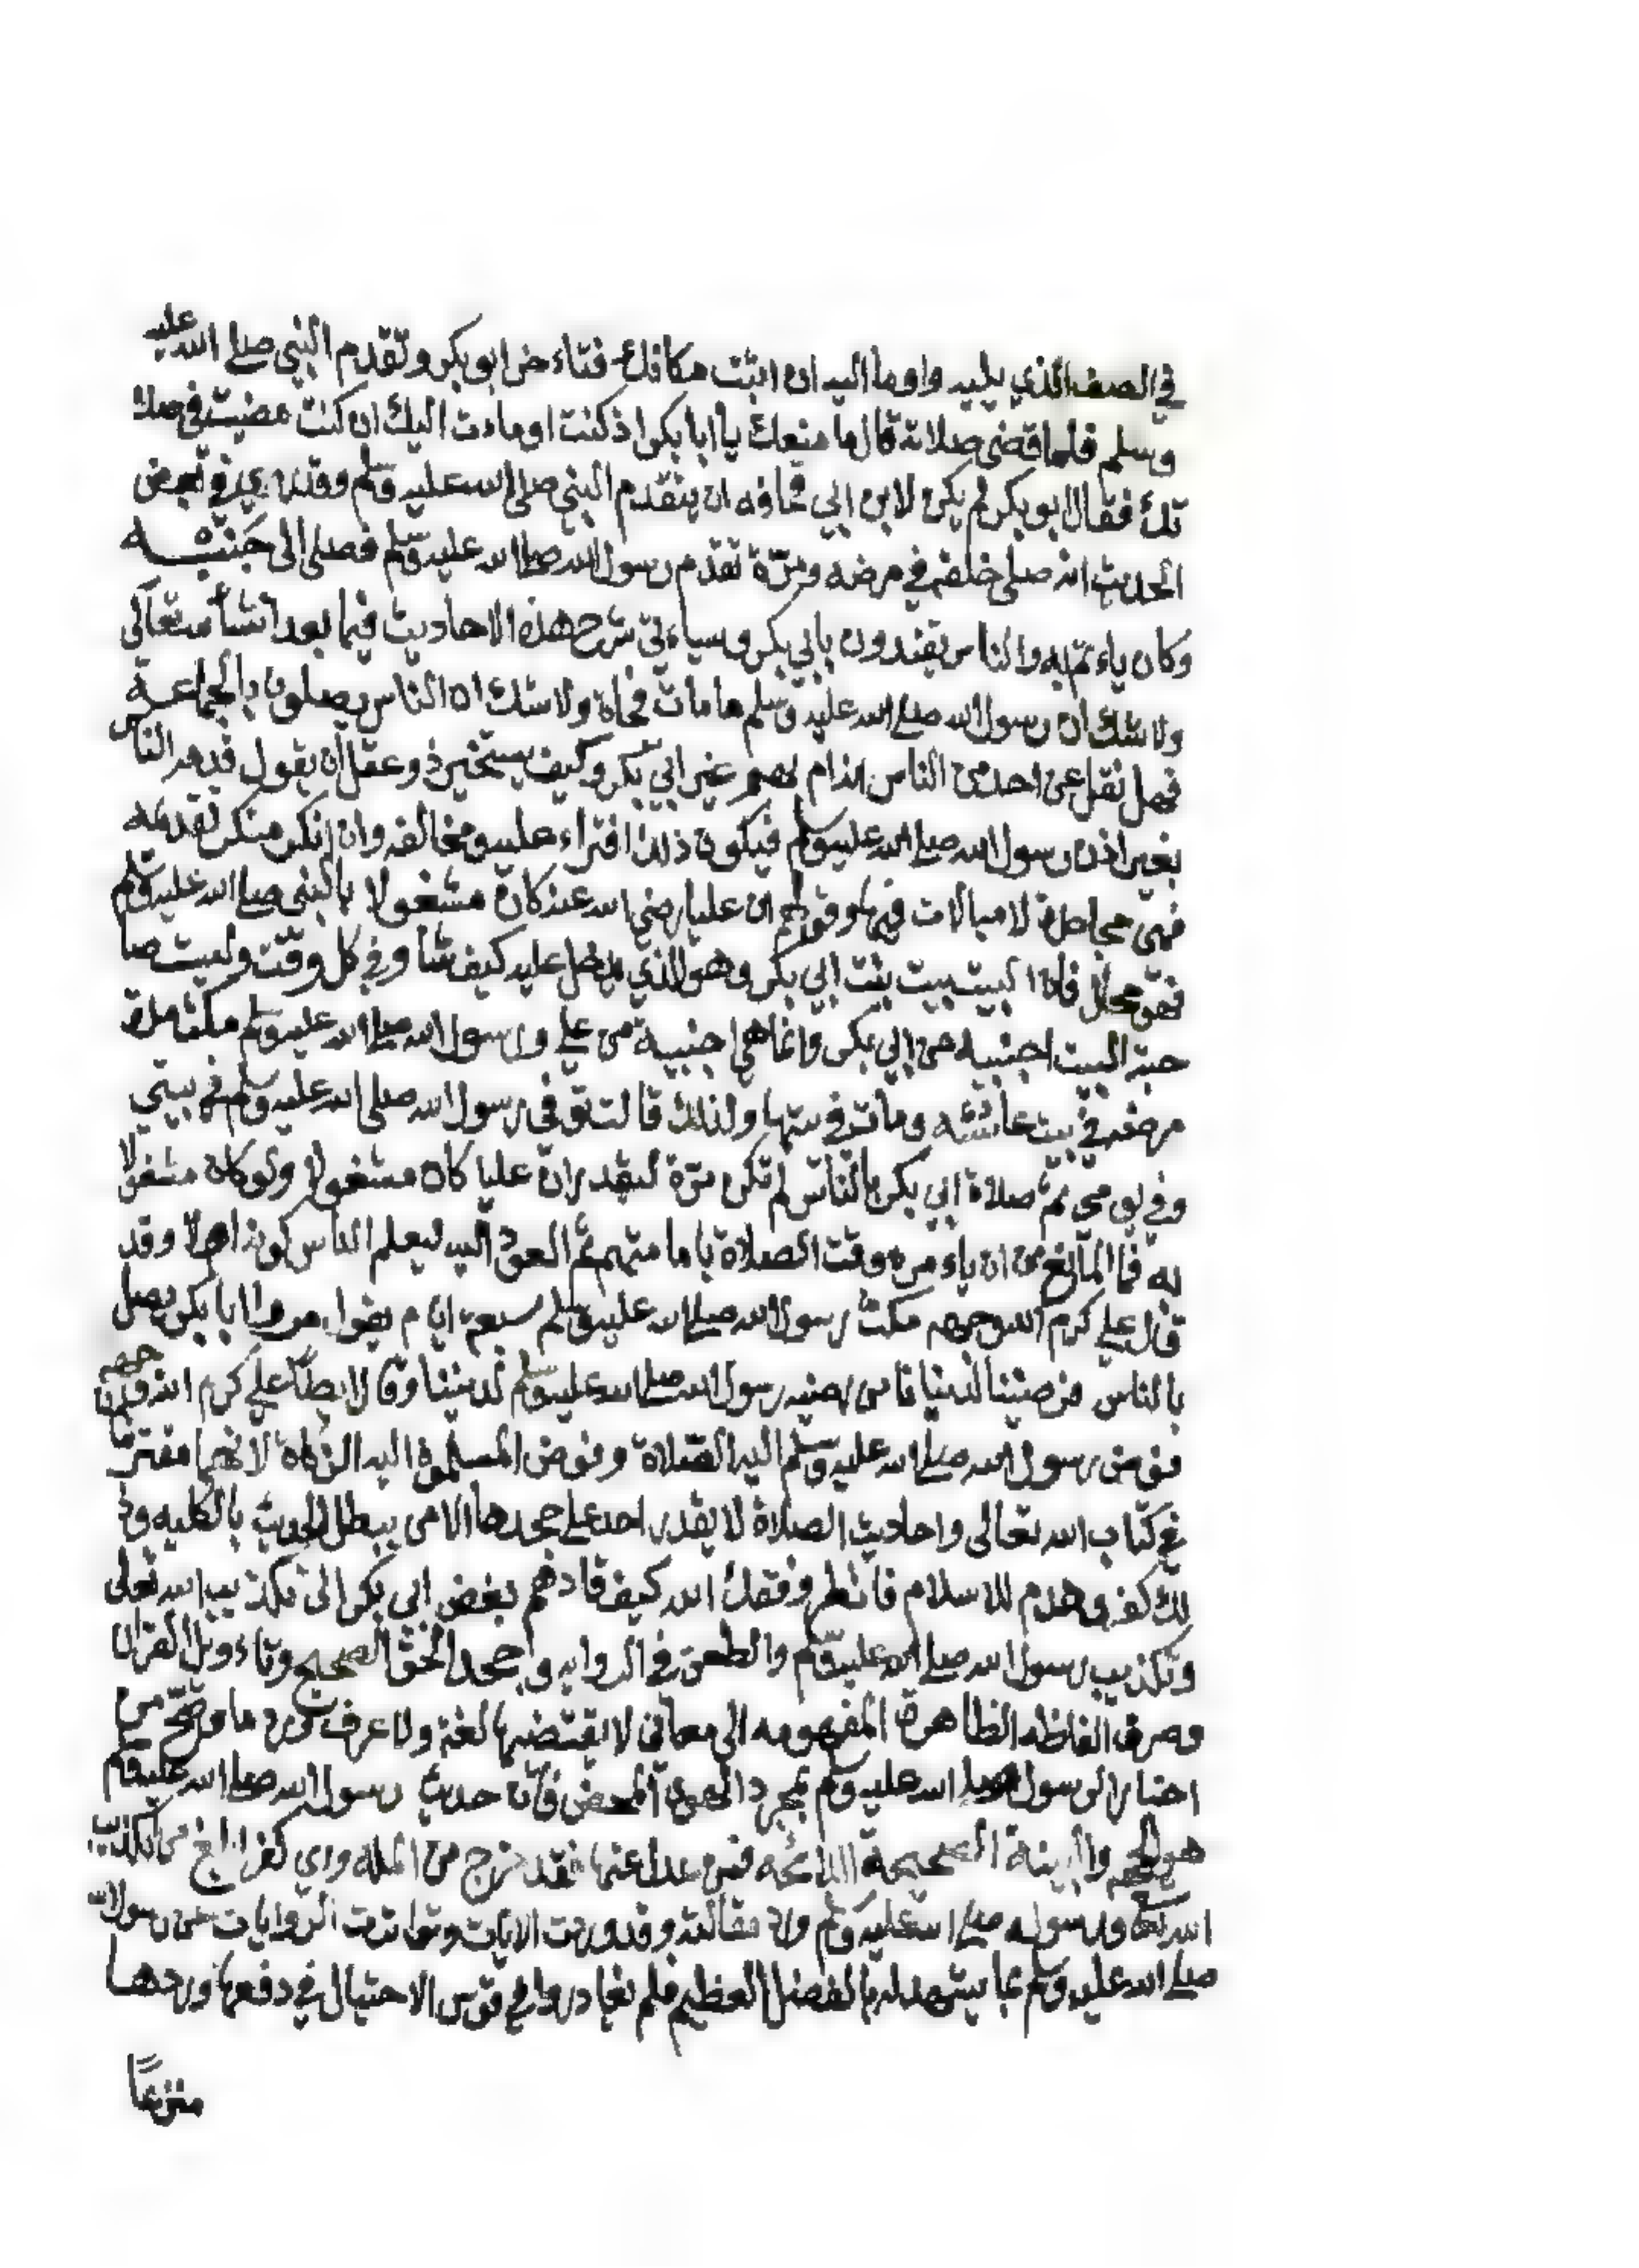 في الصف الذي يليه واوما اليه ان اثبت مكانك فتاءخر ابو بكر وتقدم النبي صلى الله عليه
وسلم فلما قضى صلاته قال ما منعك يا ابا بكر اذ كنت اومات اليك ان كنت مضيت في صلا
تك فقال ابو بكر لم يكن لابن ابي قحافه ان يتقدم النبي صلى الله عليه وسلم وقد روي في بعض
الحديث انه صلى خلفه في مرضه ومرّة تقدم رسول الله صلى الله عليه وسلم فصلى الى جَنْبِه
وكان ياءتم به والناس يقتدون بابي بكر وسياءتي شرح هذه الاحاديث فيما بعد انشأ الله تعالى
ولا شك ان رسول الله صلى الله عليه وسلم ما مات فجاة ولا شك ان الناس يصلون بالجماعة
فهل نقل عن احد من الناس انه ام بهم غير ابي بكر وكيف يستخير ذو عقل ان يقول قدمه الناس
بغير اذن رسول الله صلى الله عليه وسلم فيكون ذلك افتراء عليه ومخالفه وان انكر منكر تقدمه
فهي مجاهلة لا مبالات فيها وقولهم ان عليا رضي الله عنه كان مشغولا بالنبي صلى الله عليه وسلم
فهو محال فان البيت بيت بنت ابي بكر وهو الذي يدخل عليه كيف شا وفي كل وقت وليست صا
حبة البيت اجنبيه من ابي بكر وانما هي اجنبية من علي ورسول الله صلى الله عليه وسلم مكث مدة
مرضه في بيت عائشه ومات في بيتها ولذلك قالت توفى رسول الله صلى الله عليه وسلم في بيتي
وفي يومي ثم صلاة ابي بكر بالناس لم تكن مرّة ليقدر ان عليا كان مشغولا ولو كان مشغولا
به فما المانع من ان ياءمره وقت الصلاة بامامتهم ثم العود اليه ليعلم الناس كونه اهلا وقد
قال علي كرم الله وجهه مكث رسول الله صلى الله عليه وسلم سبعة ايام يقول مروا ابا بكر يصل
بالناس فرضينا لدنيانا من رضيه رسول الله صلى الله عليه وسلم لديننا وقال ايضا علي كرم الله وجهه
فوض رسول الله صلى الله عليه وسلم اليه الصّلاة وفوض المسلمون اليه الزكاة لانهما مقترنان
في كتاب الله تعالى واحاديث الصلاة لا يقدر احد على جحدها الا من يبطل الحديث بالكليه وذ
لك كفر وهدم للاسلام فانظر وفقك الله كيف قادهم بغض ابي بكر الى تكذيب الله تعالى
وتكذيب رسول الله صلى الله عليه وسلم والطعن في الروايه وجحد الحق الصحيح وتاءويل القران
وصرف الفاظه الظاهرة المفهومه الى معاني لا يقتضيها لغة ولا عرف ورد ما صح من
اخبار الرسول صلى الله عليه وسلم بمجرد الهوى المحض فان حديث رسول الله صلى الله عليه وسلم
هو والبينة الصحيحة فمن عدل عنها فقد خرج من المله واي كفر ابلغ من تكذيب
الله تعالى ورسوله صلى الله عليه وسلم ورد مقالته وقد وردت الايات وتواترت الروايات عن رسول الله
صلى الله عليه وسلم بما يشهد له بالفضل العظيم فلم يغادروا في قوس الاحتيال في دفعها وردها
منزعًا